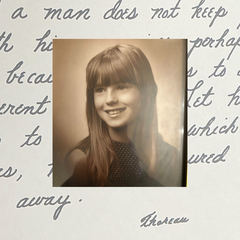 a man does not keep
th hi perhap
becau s to a
erent Let h
to which
ured
away.
Thoreau